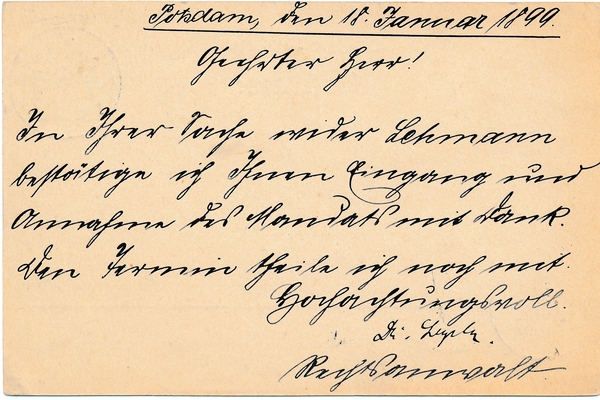 Potsdam, den 18. Januar 1899.
Geehrter Herr!
In Ihrer Sache wider Lehmann
bestätige ich Ihnen Eingang und
Annahme des Mandats mit Dank.
Den Termin theile ich noch mit.
Hochachtungsvoll.
Dr.
Rechtsanwalt.